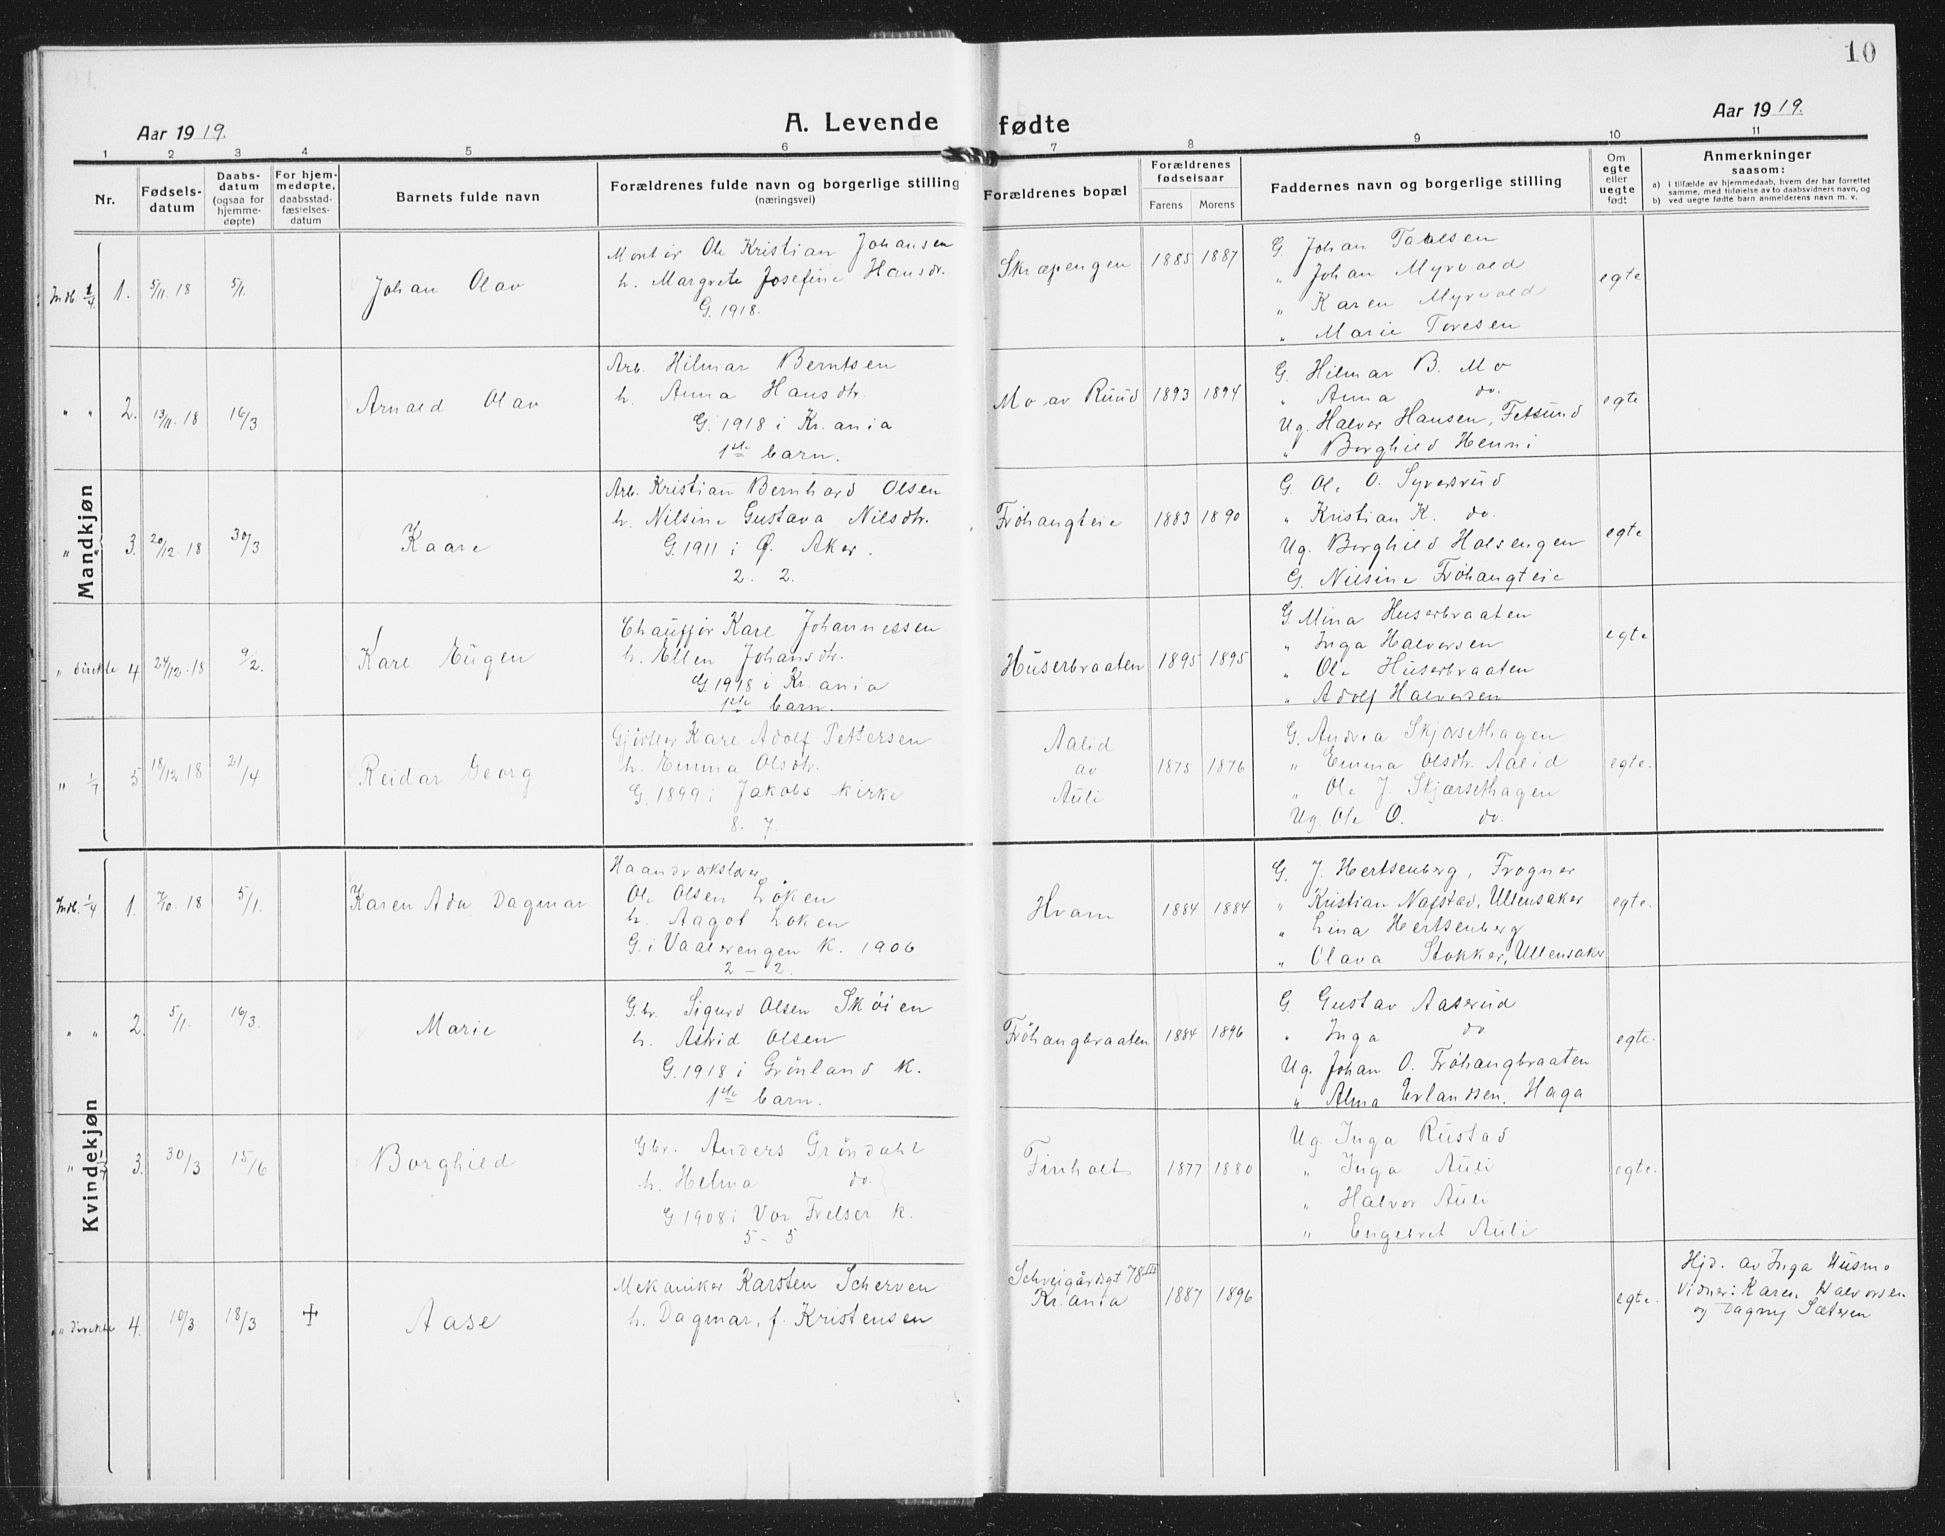 10
Aar 1919.
A. Levende fødte
Aar 1919.
1 2 3 4 5 6 7 8 9 10 11
Nr.
Fødsels-
datum
Daabs-
datum
(ogsaa for
hjemme-
døpte)
For hjem-
medøpte,
daabsstad-
fæstelses-
datum
Barnets fulde navn
Forældrenes fulde navn og borgerlige stilling
(næringsvei)
Forældrenes bopæl
Forældrenes
fødselsaar
Farens Morens
Faddernes navn og borgerlige stilling
Om
egte
eller
uegte
født
Anmerkninger
saasom:
a) i tilfælde av hjemmedaab, hvem der har forrettet
samme, med tilføielse av to daabsvidners navn, og
b) ved uegte fødte barn anmelderens navn m. v.
Mandkjøn
Indb. 1/4 1. 5/11. 18 5/1. Johan Olav
Montør Ole Kristian Johansen
h. Margrete Josefine Hansdr.
G. 1918.
Skræpengen 1885 1887
G. Johan Paalsen
„ Johan Myrvold
„ Karen Myrvold
„ Marie Toresen
egte
„ „ 2. 13/11. 18 16/3 Arnold Olav
Arb. Hilmar Berntsen
h. Anna Hansdtr.
G. 1918 i Kr.ania
1ste barn.
Mo av Ruud 1893 1894
G. Hilmar B. Mo
„ Anna do.
Ug. Halvor Hansen, Fetsund
„ Borghild Henni
egte
„ „ 3. 20/12. 18 30/3 Kaare
Arb. Kristian Bernhard Olsen
h. Nilsine Gustava Nilsdtr.
G. 1911 i Ø. Aker.
2. 2.
Frøhaugteie 1883 1890
G. Ole O. Syversrud
„ Kristian K. do.
Ug. Borghild Holsengen
G. Nilsine Frøhaugteie
egte
„ direkte 4 24/12. 18 9/2. Karl Eugen
Chauffør Karl Johannessen
h. Ellen Johansdtr.
G. 1918 i Kr.ania
1ste barn.
Huserbraaten 1895 1895
G. Mina Huserbraaten
„ Inga Halvorsen
„ Ole Huserbraaten
„ Adolf Halvorsen
egte
„ 1/7 5 18/12. 18 21/4 Reidar Georg
Gjørtler Karl Adolf Pettersen
h. Emma Olsdtr.
G. 1899 i Jakobs kirke
8. 7.
Aalid
av
Auli
1875 1876
G. Andrea Skjørsethagen
„ Emma Olsdtr. Aalid
„ Ole J. Skjørsethagen
Ug. Ole O. do.
egte.
Kvindekjøn
Indb. 1/4 1. 7/10. 18 5/1. Karen Ada Dagmar
Haandverkslærer
Ole Olsen Løken
h. Aagot Løken
G. i Vaalerengen K. 1906
2 - 2.
Hvam 1884 1884
G. J. Hertsenberg, Frogner
„ Kristian Nafstad, Ullensaker
„ Lina Hertsenberg
„ Olava Stokker, Ullensaker
egte.
„ „ 2. 5/1. 16/3. Marie
Gbr. Sigurd Olsen Skøien
h. Astrid Olsen
G. 1918 i Grønland K.
1ste barn.
Frøhaugbraaten 1884 1896
G. Gustav Aaserud
„ Inga do
Ug. Johan O. Frøhaugbraaten
„ Alma Erlandsen, Haga
egte.
„ 1/7 3. 30/3 15/6 Borghild
Gbr. Anders Grøndahl
h. Helma do.
G. 1908 i Vor Frelser K.
5 - 5
Finholt 1877 1880
Ug. Inga Rustad
„ Inga Auli
„ Halvor Auli
„ Engebret Auli
egte.
„ direkte 4. 10/3 18/3 Aase
Mekaniker Karsten Scherven
h. Dagmar, f. Kristensen
Schveigårdsgt 78III
Kr.ania
1887 1896
egte.
Hjd. av Inga Husmo
Vidner: Karen Halvorsen
og Dagny Sæteren